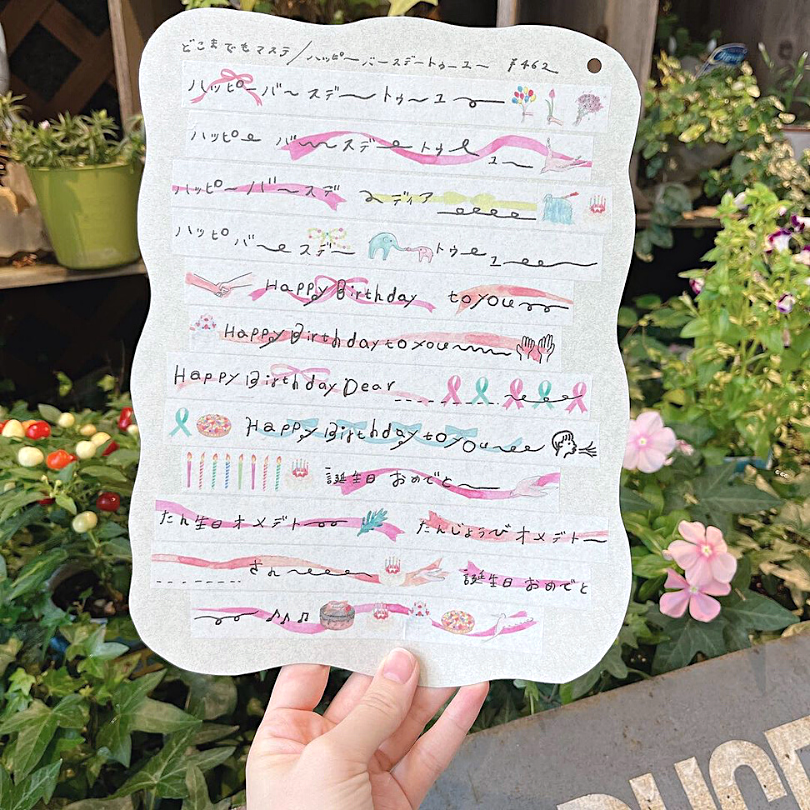 どこまでもマステ/ハッピーバースデートゥーユー ¥462
ハッピーバースデートゥーユー
ハッピーバースデートゥーユー
ハッピーバースデーディア
ハッピバースデートゥーユー
Happy Birthday to you
Happy Birthday to you
Happy Birthday Dear
Happy Birthday to you
誕生日 おめでとー
たん生日オメデトー たんじょうびオメデトー
さんー 誕生日 おめでと